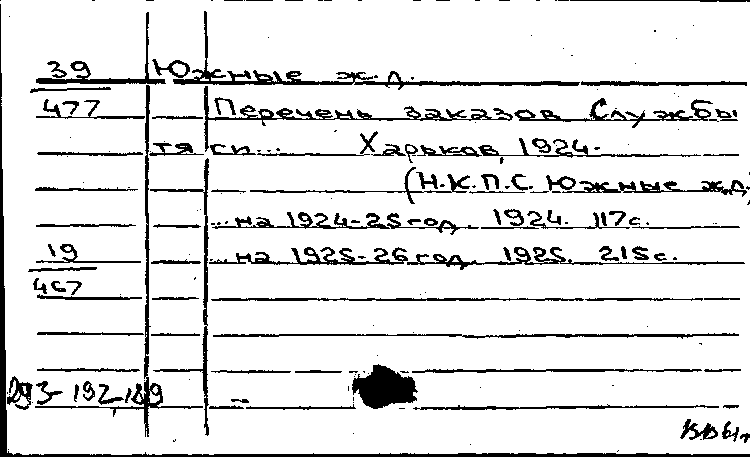 39 Южные ж.д.
477 Перечень заказов Службы
тяги... Харьков, 1924-
(Н.К.П.С. Южные ж.д.)
...на 1924-25 год. 1924. 117с.
19 ...на 1925-26 год. 1925. 215с.
467
293-192,189 -